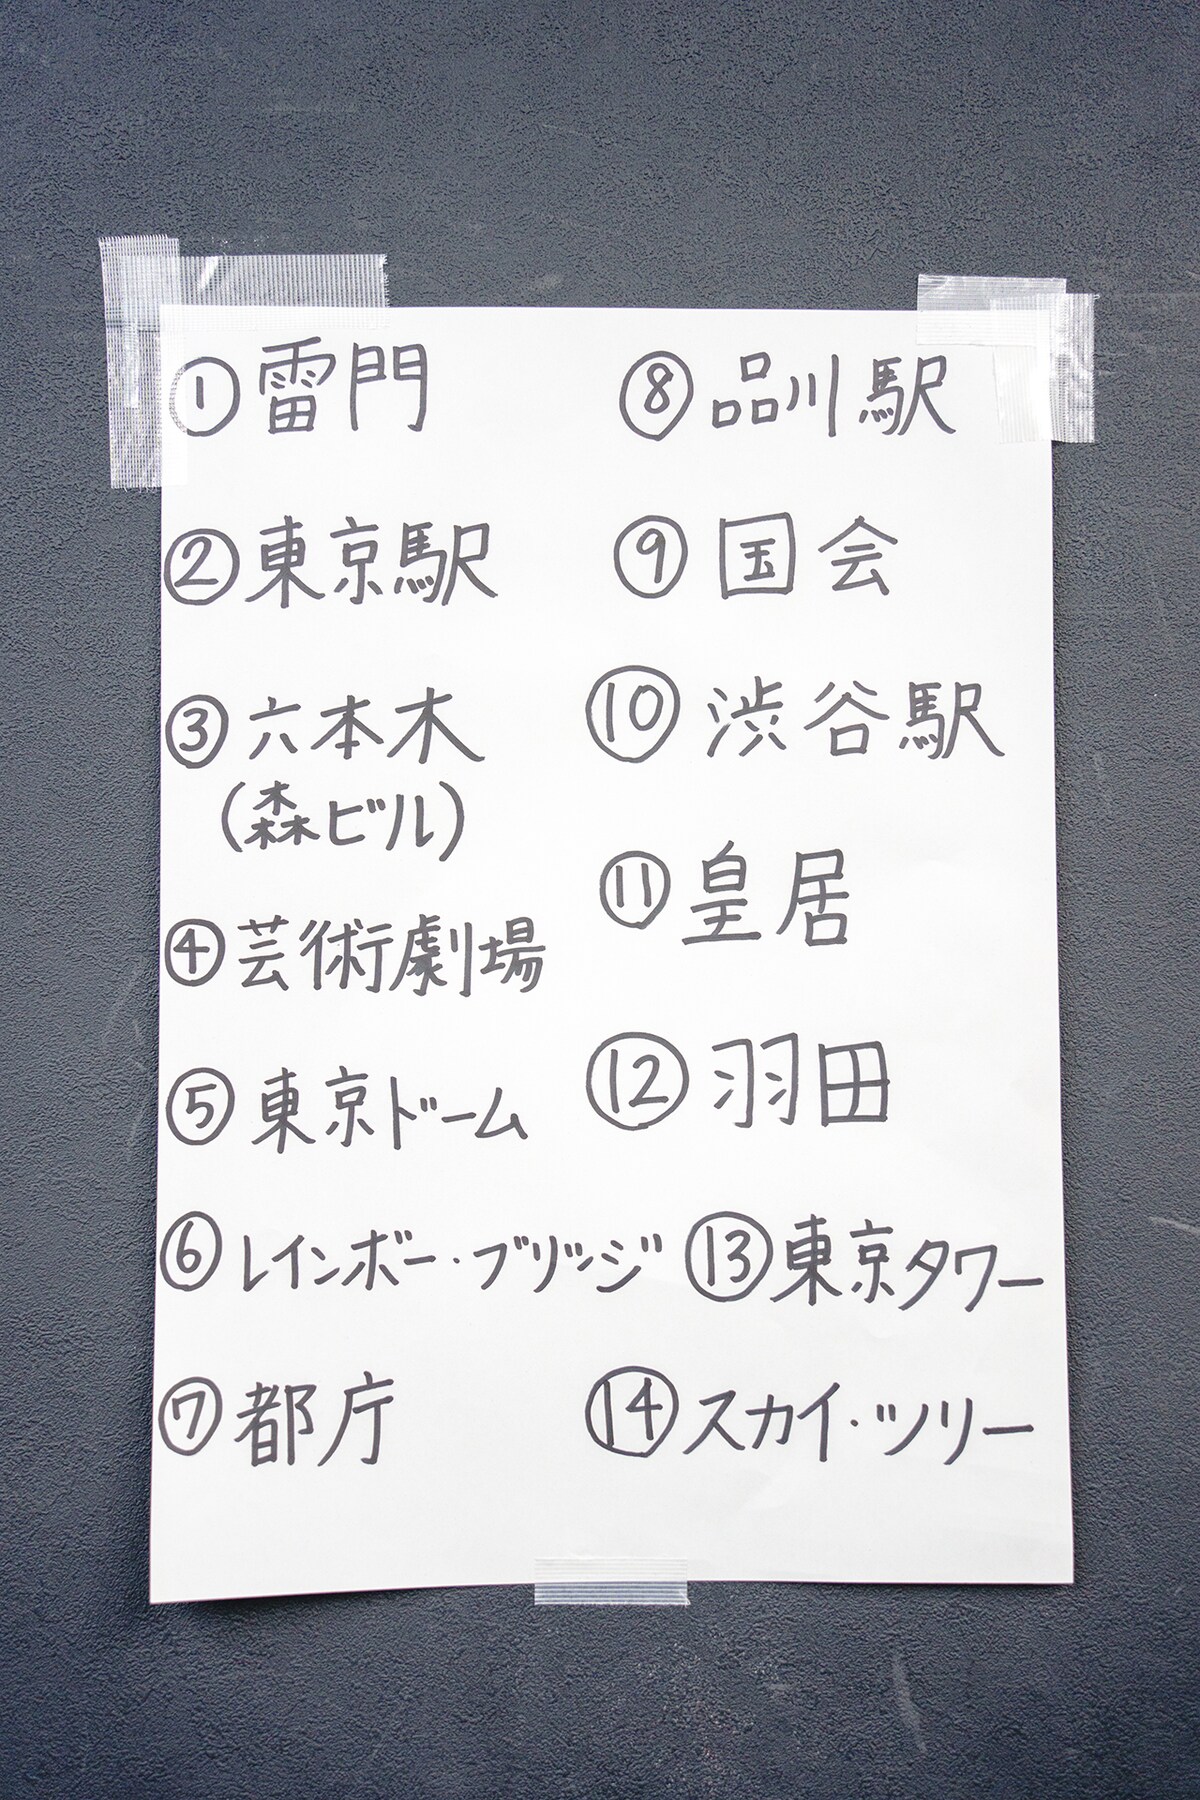 ① 雷門
② 東京駅
③ 六本木
(森ビル)
④ 芸術劇場
⑤ 東京ドーム
⑥ レインボー・ブリッジ
⑦ 都庁
⑧ 品川駅
⑨ 国会
⑩ 渋谷駅
⑪ 皇居
⑫ 羽田
⑬ 東京タワー
⑭ スカイ・ツリー